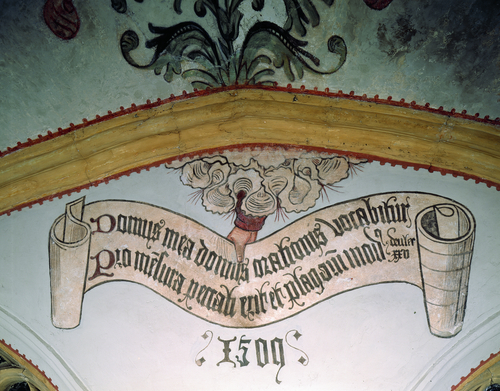 Domus mea domus orationis vocabitur
Pro mesura peccati erit et plagarũ modꝰ
deuter
xxv
1509